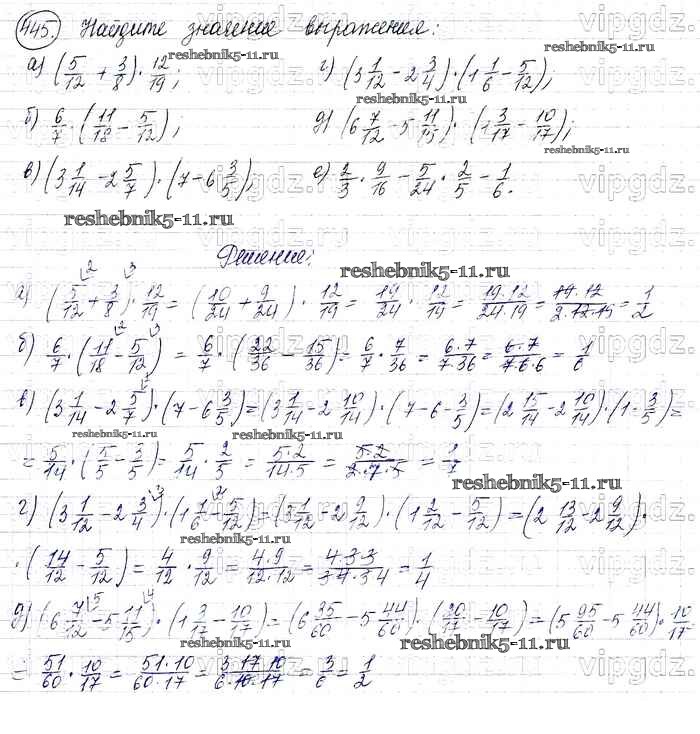 445. Найдите значение выражения:
а) (5/12 + 3/8) · 12/19; г) (3 1/12 - 2 3/4) · (1 1/6 - 5/12);
б) 6/7 · (11/18 - 5/12); д) (6 7/12 - 5 11/15) · (1 3/17 - 10/17);
в) (3 1/14 - 2 5/7) · (7 - 6 3/5); е) 2/3 · 9/16 - 5/24 · 2/5 - 1/6.
reshebnik5-11.ru
Решение:
а) (5/12 + 3/8) · 12/19 = (10/24 + 9/24) · 12/19 = 19/24 · 12/19 = 19·12/24·19 = 19·12/2·12·19 = 1/2
б) 6/7 · (11/18 - 5/12) = 6/7 · (22/36 - 15/36) = 6/7 · 7/36 = 6·7/7·36 = 6·7/7·6·6 = 1/6
в) (3 1/14 - 2 5/7) · (7 - 6 3/5) = (3 1/14 - 2 10/14) · (7 - 6 - 3/5) = (2 15/14 - 2 10/14) · (1 - 3/5) =
= 5/14 · (5/5 - 3/5) = 5/14 · 2/5 = 5·2/14·5 = 5·2/2·7·5 = 1/7
г) (3 1/12 - 2 3/4) · (1 1/6 - 5/12) = (3 1/12 - 2 9/12) · (1 2/12 - 5/12) = (2 13/12 - 2 9/12) ·
· (14/12 - 5/12) = 4/12 · 9/12 = 4·9/12·12 = 4·3·3/3·4·3·4 = 1/4
д) (6 7/12 - 5 11/15) · (1 3/17 - 10/17) = (6 35/60 - 5 44/60) · (20/17 - 10/17) = (5 95/60 - 5 44/60) · 10/17 =
= 51/60 · 10/17 = 51·10/60·17 = 3·17·10/6·10·17 = 3/6 = 1/2